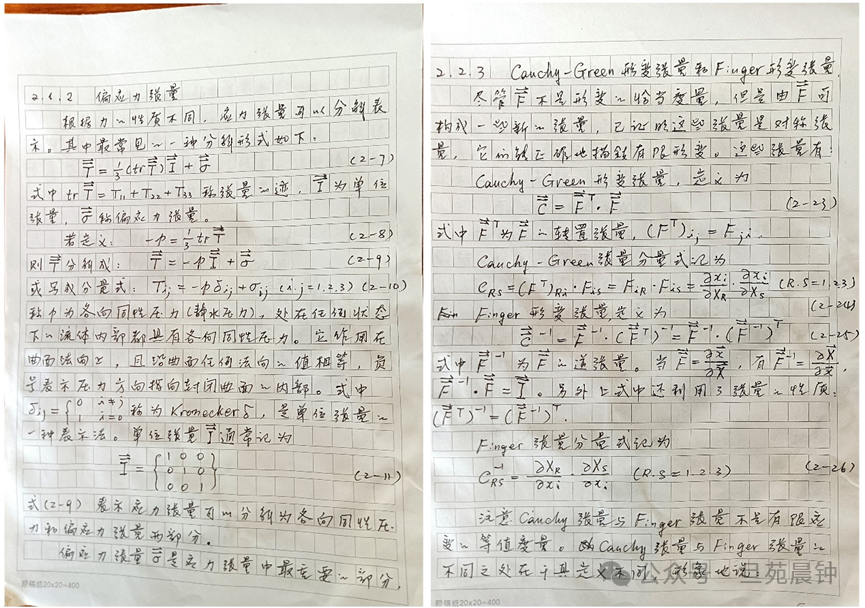 2.1.2 偏应力张量
根据力~性质不同，应力张量可以分解表
示。其中最常见~一种分解形式如下。
T = 1/3(trT)I + σ (2-7)
式中 trT = T11 + T22 + T33 称张量~迹，I 为单位
张量，σ 称偏应力张量。
若定义： -p = 1/3 trT (2-8)
则 T 分解成： T = -pI + σ (2-9)
或写成分量式： Tij = -pδij + σij (i.j=1.2.3) (2-10)
称 p 为各向同性压力(静水压力)，处在任何状态
下~流体内部都具有各向同性压力。它作用在
曲面法向上，且沿曲面任何法向~值相等，负
号表示压力方向指向封闭曲面~内部。式中
δij = { 0 i≠j
1 i=j 称为 Kronecker δ，是单位张量~
一种表示法。单位张量 I 通常记为
I = { 1 0 0
0 1 0
0 0 1 } (2-11)
式(2-9) 表示应力张量可以分解为各向同性压
力和偏应力张量两部分。
偏应力张量 σ 是应力张量中最重要~部分，
稿纸20x20=400
2.2.3 Cauchy-Green 形变张量和 Finger 形变张量
尽管 F 不是形变~恰当度量，但是由 F 可
构成一些新~张量，已证明这些张量是对称张
量，它们能正确地描述有限形变。这些张量有：
Cauchy-Green 形变张量，定义为
C = F^T · F (2-23)
式中 F^T 为 F ~转置张量，(F^T)ij = Fji.
Cauchy-Green 张量分量式记为
CRS = (F^T)Ri · FiS = FiR · FiS = ∂xi/∂XR · ∂xi/∂XS (R.S=1.2.3)
(2-24)
Finger 形变张量，定义为
C^-1 = F^-1 · (F^T)^-1 = F^-1 · (F^-1)^T (2-25)
式中 F^-1 为 F ~逆张量。当 F = ∂x/∂X，有 F^-1 = ∂X/∂x，
F^-1 · F = I。另外上式中还利用了张量~性质：
(F^T)^-1 = (F^-1)^T.
Finger 张量分量式记为
C^-1 RS = ∂XR/∂xi · ∂XS/∂xi (R.S=1.2.3) (2-26)
注意 Cauchy 张量与 Finger 张量不是有限应
变~等值度量。Cauchy 张量与 Finger 张量~
不同之处在于其定义不同，形象地说：
稿纸20x20=400
公众号
苑晨钟